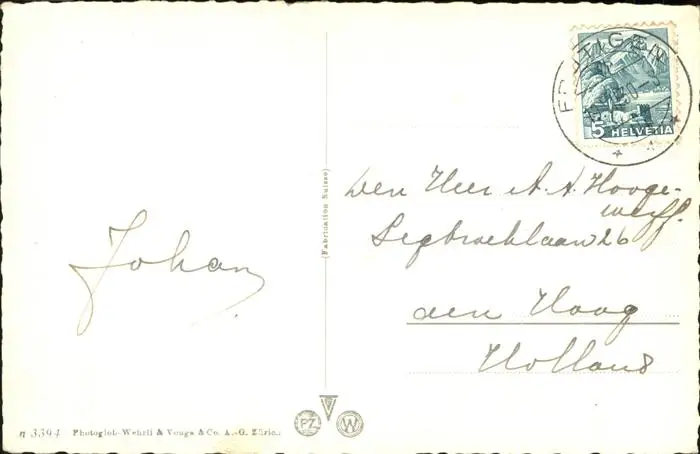 FRUTIGEN
5 HELVETIA
Den Heer A. A. Hooge-
werff.
Segbroeklaan 26
den Haag
Holland
Johan
(Fabrication Suisse)
PZ W
n 3394 Photoglob-Wehrli & Vouga & Co. A.-G. Zürich